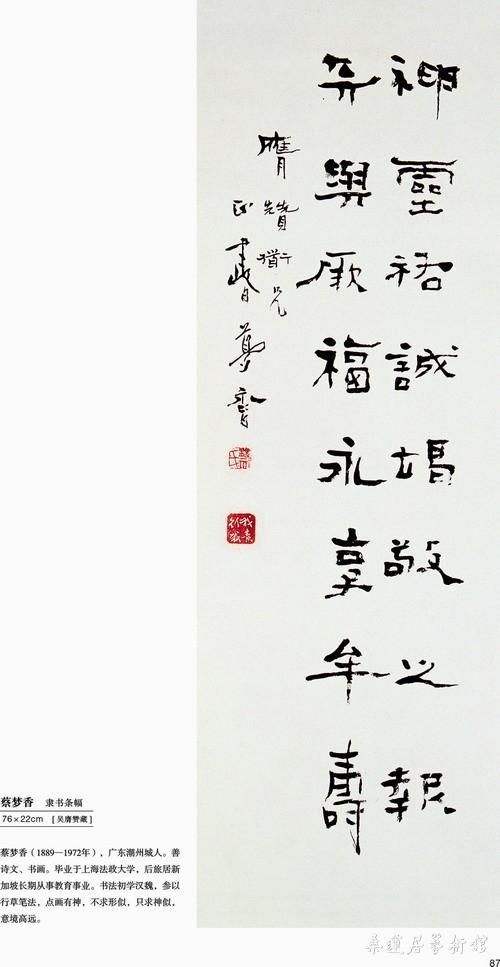 神靈祐誠竭敬之報
天與厥福永享牟壽
膺贊
正
夢香
蔡梦香 隶书条幅
76×22cm [ 吴膺赞藏 ]
蔡梦香（1889—1972年），广东潮州城人。善
诗文、书画。毕业于上海法政大学，后旅居新
加坡长期从事教育事业。书法初学汉魏，参以
行草笔法，点画有神，不求形似，只求神似，
意境高远。
桑蓮居藝術館
87